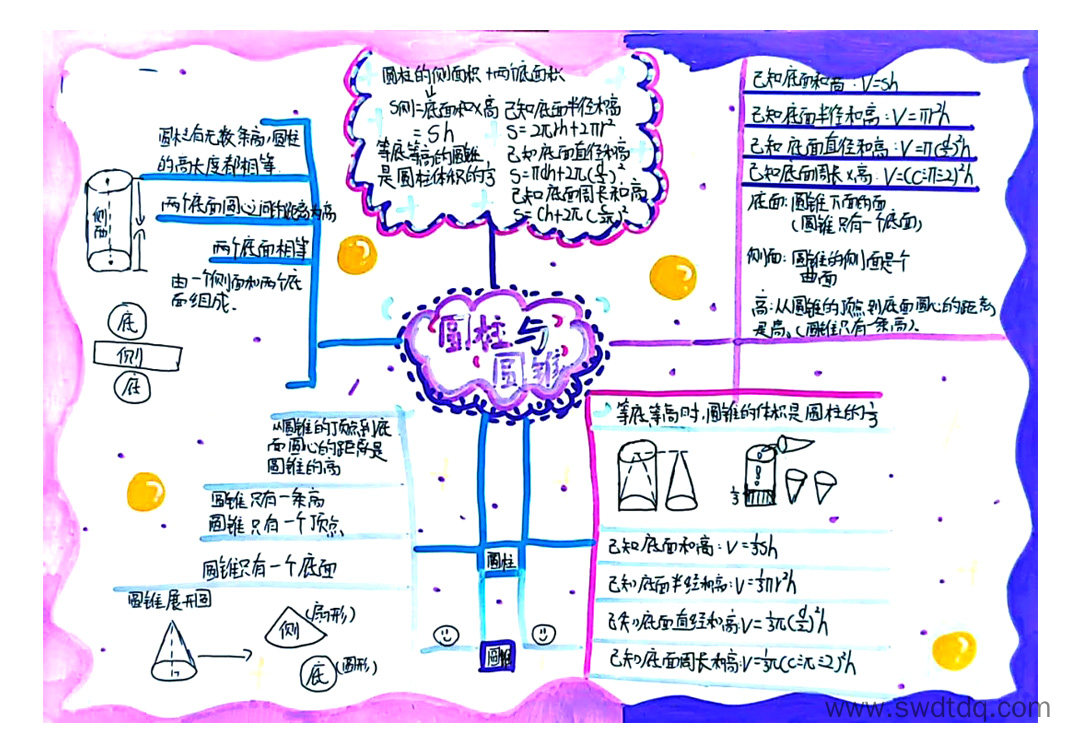 圆柱的侧面积+两个底面积
S侧=底面积×高
=Sh
等底等高的圆锥
是圆柱体积的1/3
已知底面半径和高
S=2πrh+2πr²
已知底面直径和高
S=πdh+2π(d/2)²
已知底面周长和高
S=Ch+2π(C/2π)²
圆柱有无数条高,圆柱
的高长度都相等
两个底面圆心之间的距离为高
两个底面相等
由一个侧面和两个底
面组成.
侧面
底
侧
底
已知底面和高:V=sh
已知底面半径和高:V=πr²h
已知底面直径和高:V=π(d/2)²h
已知底面周长×高:V=(C÷π÷2)²h
底面:圆锥下面的面,
(圆锥只有一个底面)
侧面:圆锥的侧面是个
曲面
高:从圆锥的顶点到底面圆心的距离
是高。(圆锥只有一条高).
圆柱与
圆锥
从圆锥的顶点到底
面圆心的距离是
圆锥的高
圆锥只有一条高
圆锥只有一个顶点
圆锥只有一个底面
圆锥展开图
侧
(扇形)
底
(圆形)
圆柱
圆锥
等底等高时,圆锥的体积是圆柱的1/3
1/3
已知底面和高:V=1/3sh
已知底面半径和高:V=1/3πr²h
已知底面直径和高:V=1/3π(d/2)²h
已知底面周长和高:V=1/3π(C÷π÷2)²h
www.swdtdq.com